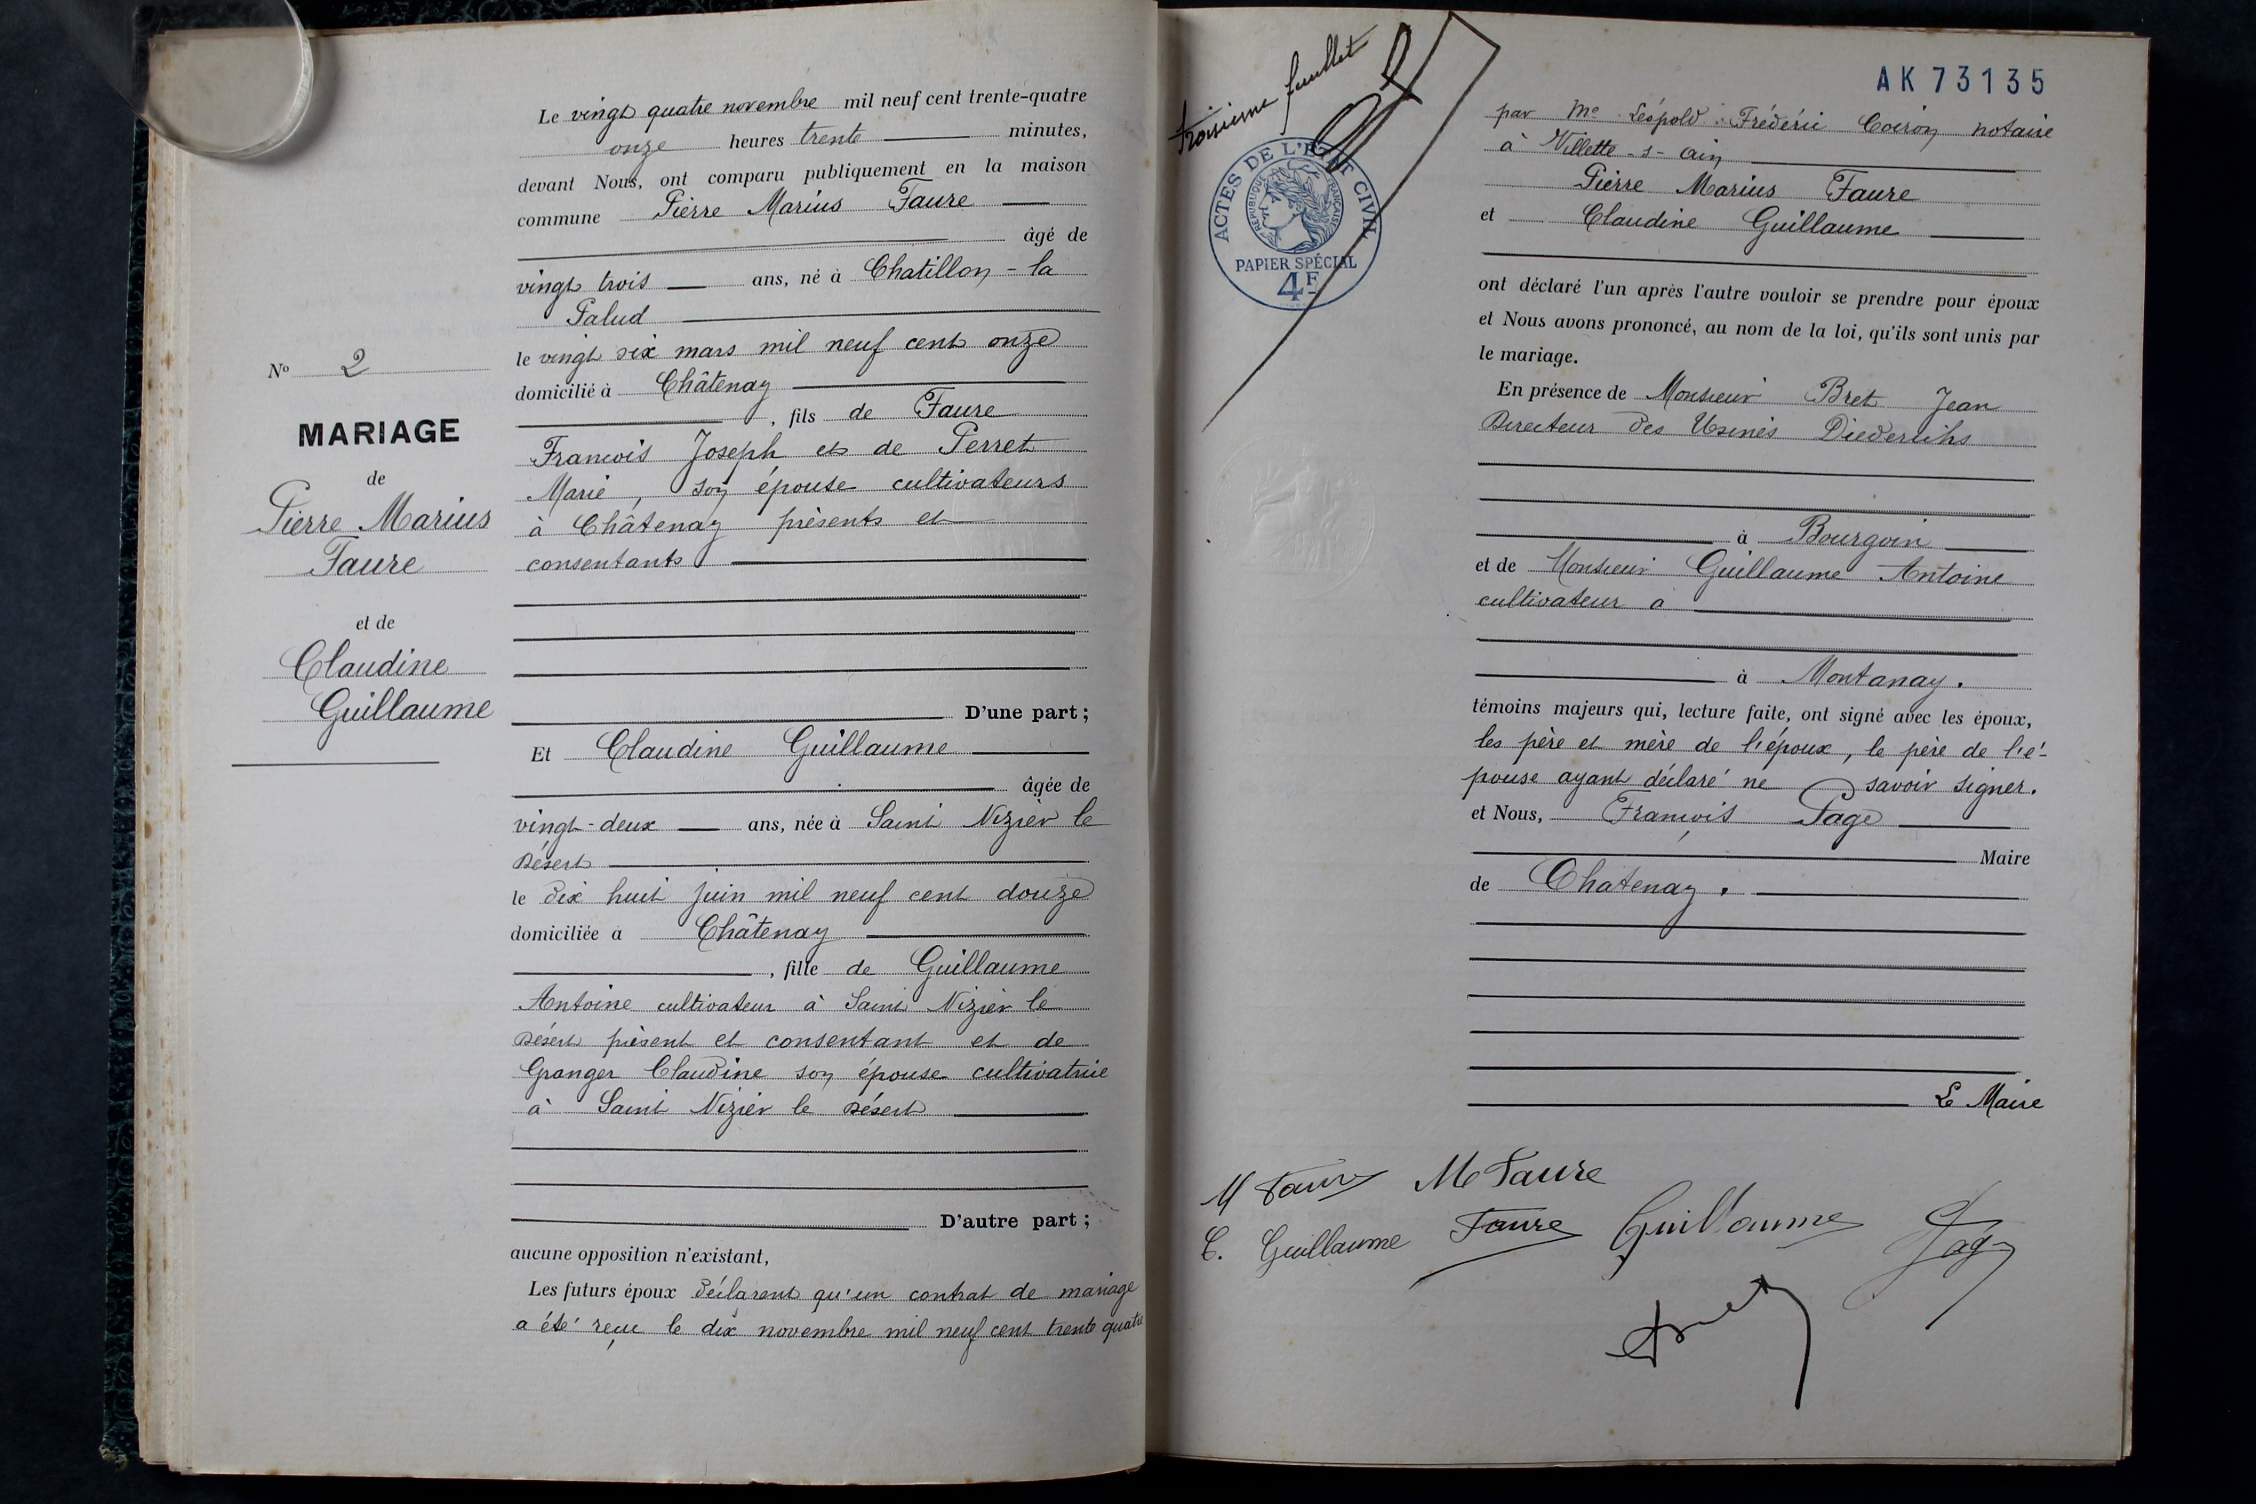 Le vingt quatre novembre mil neuf cent trente-quatre
onze heures trente minutes,
devant Nous, ont comparu publiquement en la maison
commune Pierre Marius Faure
âgé de
vingt trois ans, né à Chatillon-la
Palud
le vingt six mars mil neuf cent onze
domicilié à Châtenay
, fils de Faure
François Joseph et de Perret
Marie, son épouse cultivateurs
à Châtenay présents et
consentants
D'une part;
Et Claudine Guillaume
âgée de
vingt-deux ans, née à Saint Nizier le
Désert
le dix huit juin mil neuf cent douze
domiciliée à Châtenay
, fille de Guillaume
Antoine cultivateur à Saint Nizier le
Désert présent et consentant et de
Granger Claudine son épouse cultivatrice
à Saint Nizier le Désert
D'autre part;
aucune opposition n'existant,
Les futurs époux déclarent qu'un contrat de mariage
a été reçu le dix novembre mil neuf cent trente quatre
No 2
MARIAGE
de
Pierre Marius
Faure
et de
Claudine
Guillaume
troisième feuillet
ACTES DE L'ETAT CIVIL
REPUBLIQUE FRANÇAISE
PAPIER SPÉCIAL
4F
AK73135
par Me Léopold Frédéric Coiron notaire
à Villette-s-ain
Pierre Marius Faure
et Claudine Guillaume
ont déclaré l'un après l'autre vouloir se prendre pour époux
et Nous avons prononcé, au nom de la loi, qu'ils sont unis par
le mariage.
En présence de Monsieur Bret Jean
Directeur des Usines Diederichs
à Bourgoin
et de Monsieur Guillaume Antoine
cultivateur a
à Montanay.
témoins majeurs qui, lecture faite, ont signé avec les époux,
les père et mère de l'époux, le père de l'é-
pouse ayant déclaré ne savoir signer.
et Nous, François Page
Maire
de Chatenay.
Le Maire
M Faure M Faure
C. Guillaume Faure Guillaume Page
Bret